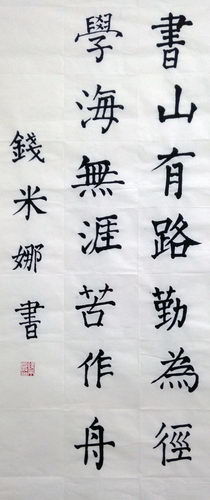 書山有路勤為徑
學海無涯苦作舟
錢米娜書